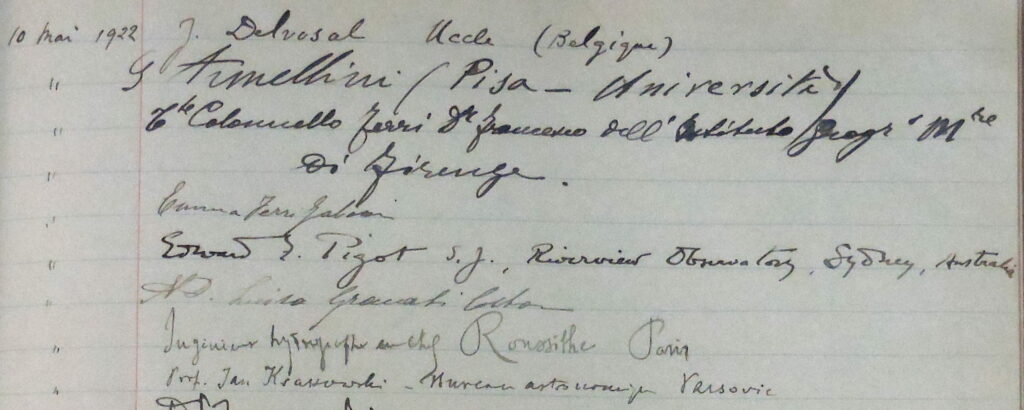 10 mai 1922 J. Delvosal Uccle (Belgique)
" G Armellini (Pisa – Università)
" T.te Colonnello Ferri Dr Francesco dell' Istituto Geogr. Mre
" Di Firenze.
" Emma Ferri
" Edward F. Pigot S.J., Riverview Observatory, Sydney, Australia
" Luisa Granati
" Ingenieur hydrographe en chef Paris
" Prof. Jan Krassowski – Bureau astronomique Varsovie